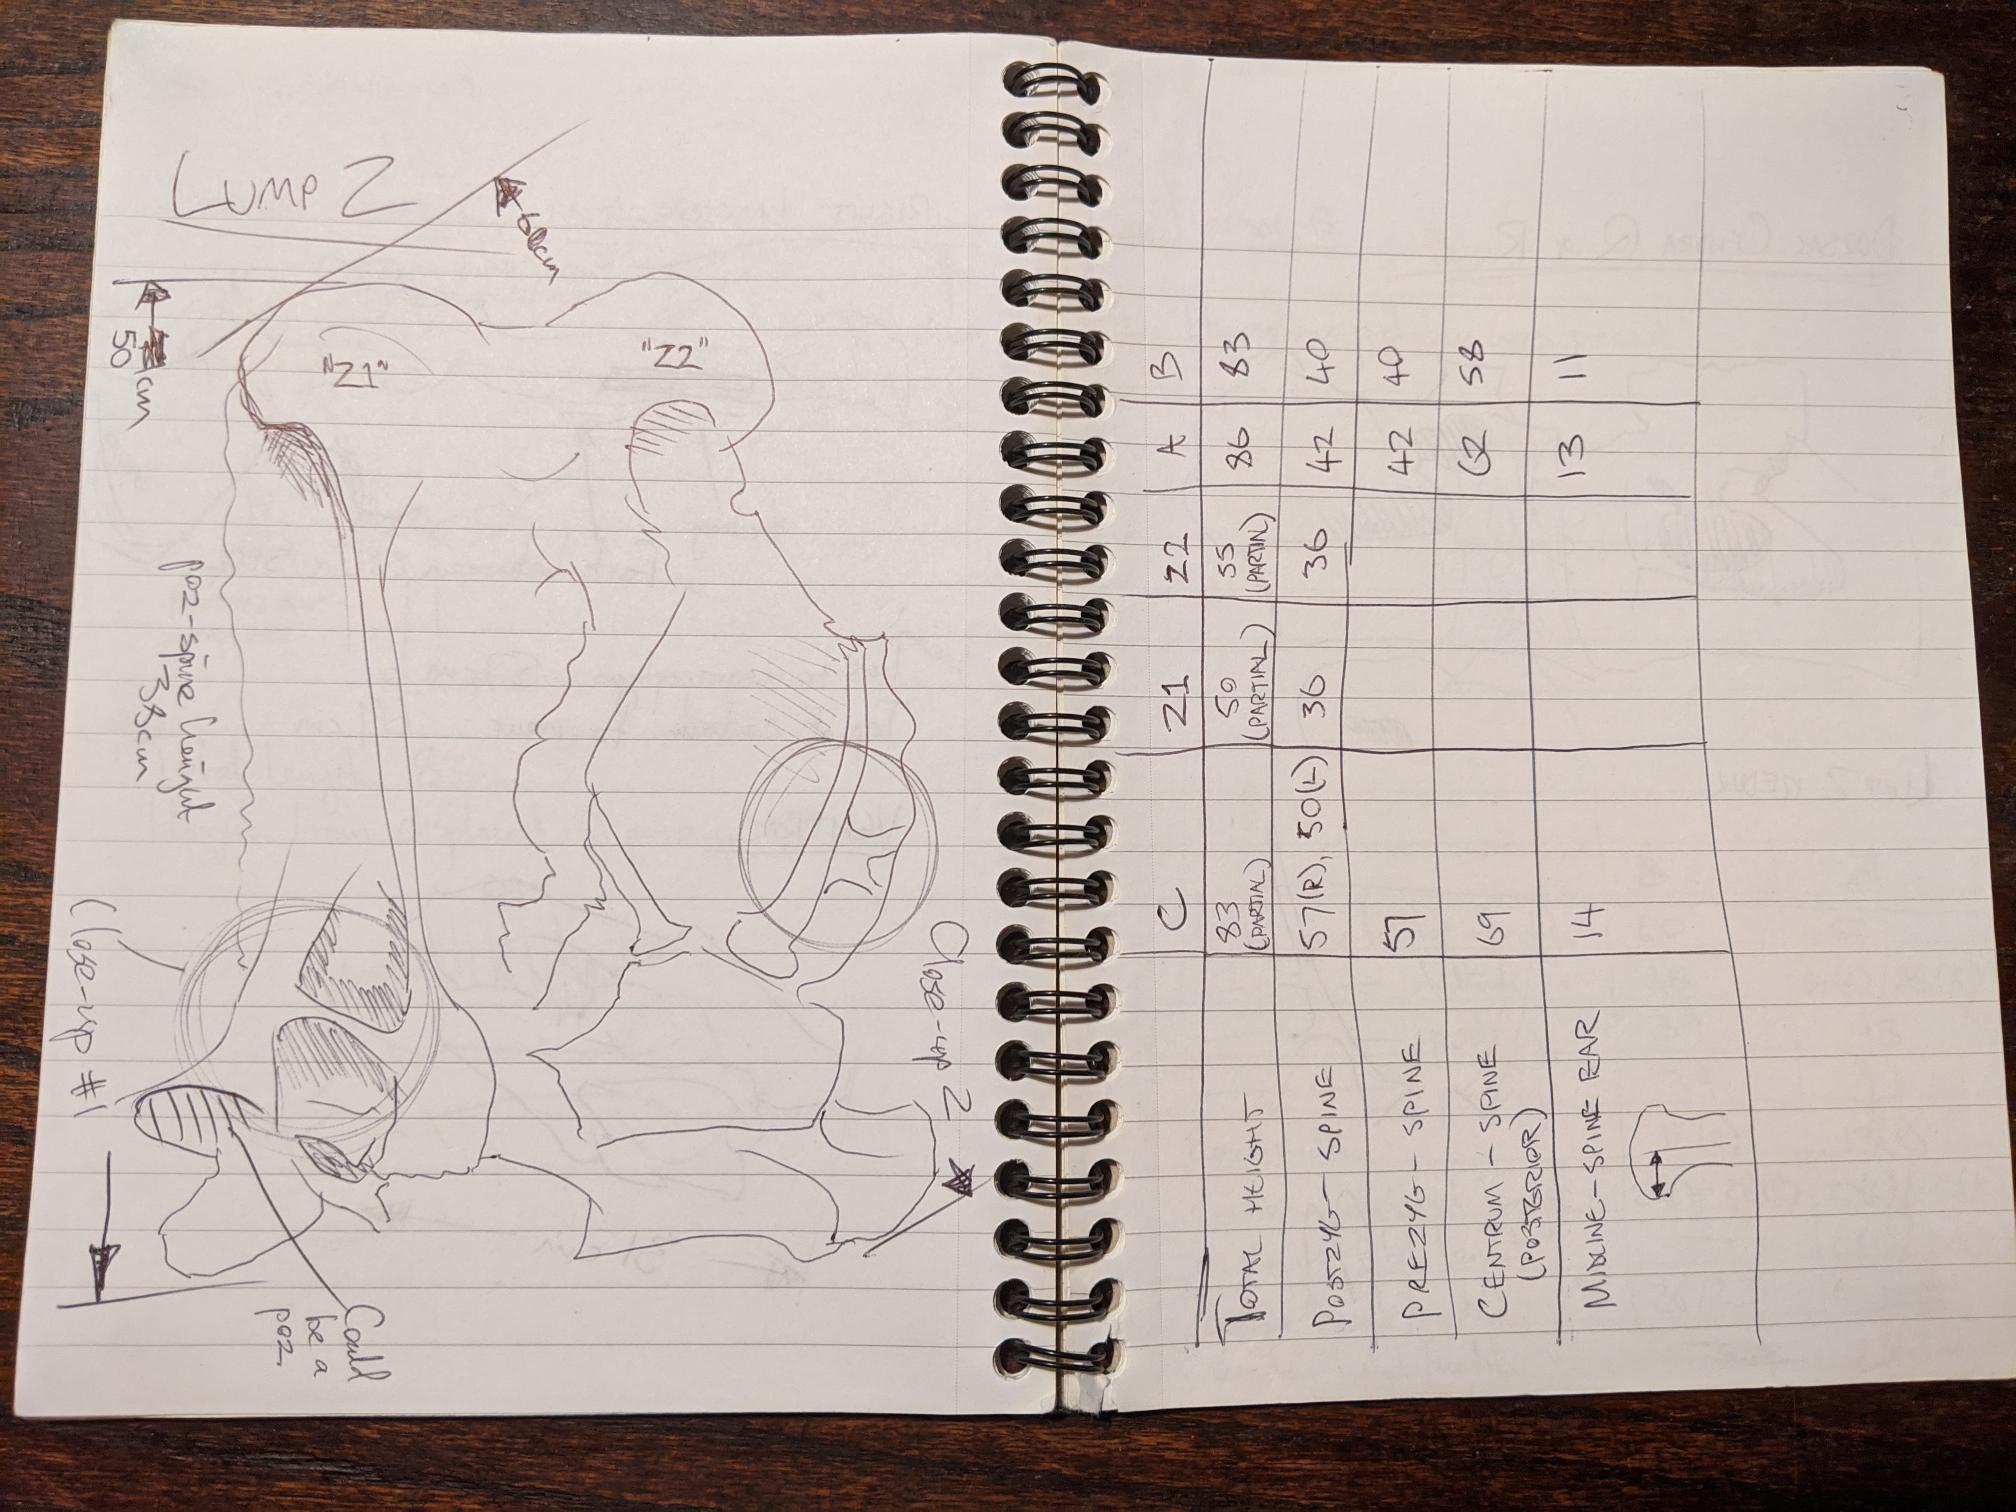 LUMP Z
cm
50 cm
"Z1"
"Z2"
poz-spine height
38cm
Close-up #1
Close-up 2
Could
be a
poz.
C Z1 Z2 A B
TOTAL HEIGHT 83 (PARTIAL) 50 (PARTIAL) 55 (PARTIAL) 86 83
POSTZYG-SPINE 57(R), 50(L) 36 36 42 40
PREZYG-SPINE 57 42 40
CENTRUM-SPINE 69 62 58
(POSTERIOR)
MIDLINE-SPINE REAR 14 13 11